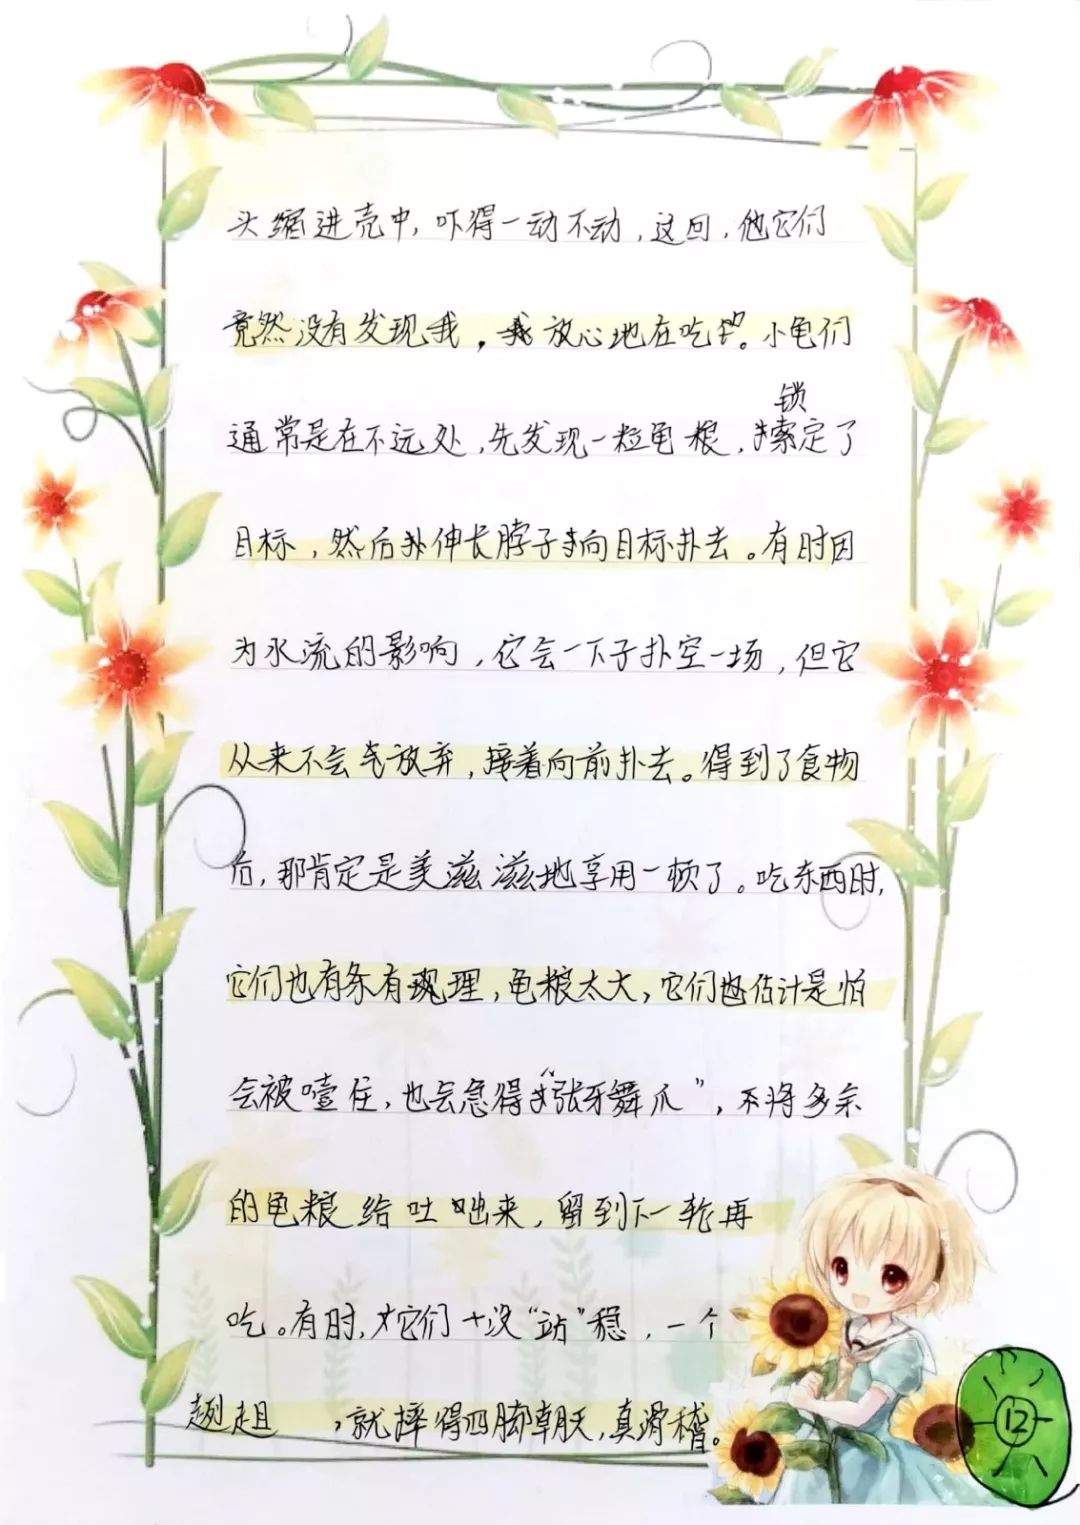 头缩进壳中,吓得一动不动,这回,他它们
竟然没有发现我,我放心地在吃呢。小龟们
锁
通常是在不远处,先发现一粒龟粮,索定了
目标,然后伸长脖子向目标扑去。有时因
为水流的影响,它会一下子扑空一场,但它
从来不会放弃,接着向前扑去。得到了食物
后,那肯定是美滋滋地享用一顿了。吃东西时,
它们也有条有理,龟粮太大,它们也估计是怕
会被噎住,也会急得“张牙舞爪”,不将多余
的龟粮给吐出来,留到下一轮再
吃。有时,它们没“站”稳,一个
趔趄,就摔得四脚朝天,真滑稽。
12